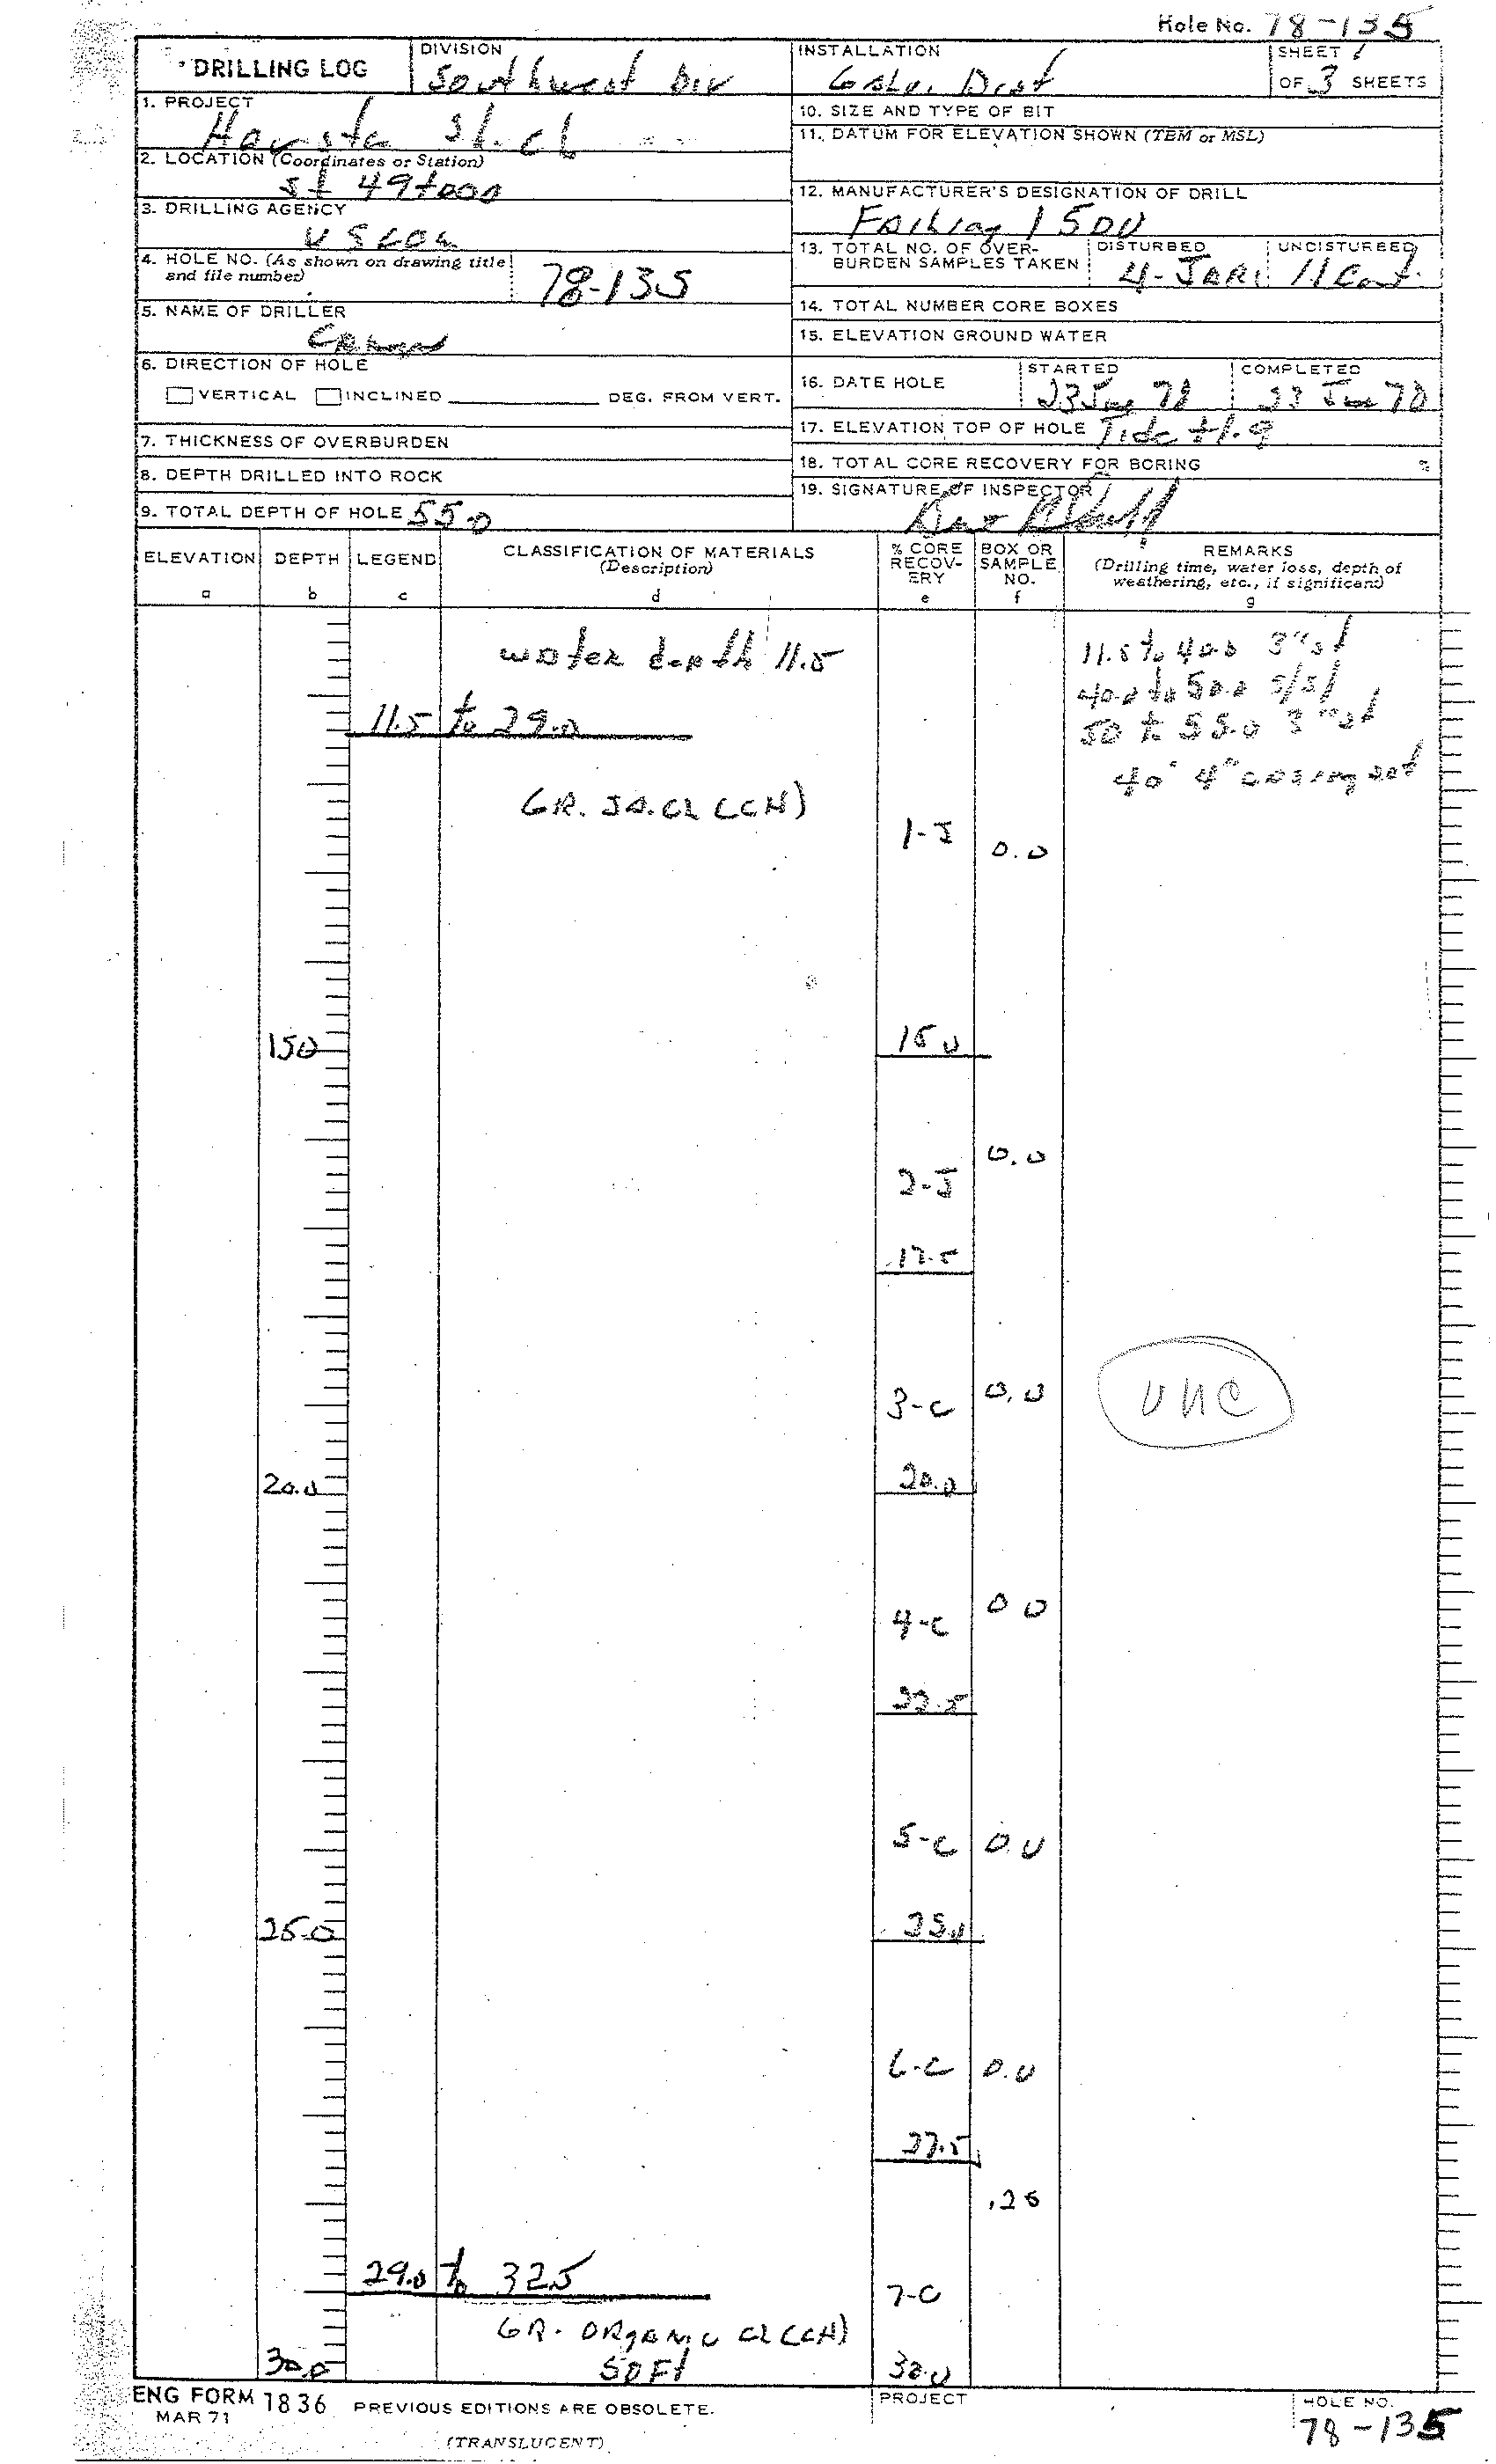 Hole No. 78-135
DRILLING LOG
DIVISION
Southwest Div
INSTALLATION
Galv. Dist
SHEET 1
OF 3 SHEETS
1. PROJECT
Houston Sh. Ch
2. LOCATION (Coordinates or Station)
St 49+000
3. DRILLING AGENCY
USCOE
4. HOLE NO. (As shown on drawing title and file number)
78-135
5. NAME OF DRILLER
6. DIRECTION OF HOLE
VERTICAL INCLINED DEG. FROM VERT.
7. THICKNESS OF OVERBURDEN
8. DEPTH DRILLED INTO ROCK
9. TOTAL DEPTH OF HOLE 55.0
10. SIZE AND TYPE OF BIT
11. DATUM FOR ELEVATION SHOWN (TBM or MSL)
12. MANUFACTURER'S DESIGNATION OF DRILL
Failing 1500
13. TOTAL NO. OF OVER-
BURDEN SAMPLES TAKEN
DISTURBED
4-JARS
UNDISTURBED
11 Cont.
14. TOTAL NUMBER CORE BOXES
15. ELEVATION GROUND WATER
16. DATE HOLE
STARTED
23 June 78
COMPLETED
23 June 78
17. ELEVATION TOP OF HOLE Tide +1.9
18. TOTAL CORE RECOVERY FOR BORING %
19. SIGNATURE OF INSPECTOR
ELEVATION DEPTH LEGEND CLASSIFICATION OF MATERIALS (Description) % CORE RECOV-ERY BOX OR SAMPLE NO. REMARKS (Drilling time, water loss, depth of weathering, etc., if significant)
a b c d e f g
water depth 11.5
11.5 to 40.0 3"st
40.0 to 50.0 s/s/
50 to 55.0 3"st
40' 4" casing set
11.5 to 29.0
GR. SA. CL (CH)
1-J 0.0
15.0 15.0
2-J 0.0
17.5
3-C 0.0
UNC
20.0 20.0
4-C 0.0
22.5
5-C 0.0
25.0 25.0
6-C 0.0
27.5
.25
29.0 to 32.5
7-C
GR. ORGANIC CL (CH)
SOFT
30.0 30.0
ENG FORM 1836
MAR 71
PREVIOUS EDITIONS ARE OBSOLETE.
(TRANSLUCENT)
PROJECT
HOLE NO.
78-135